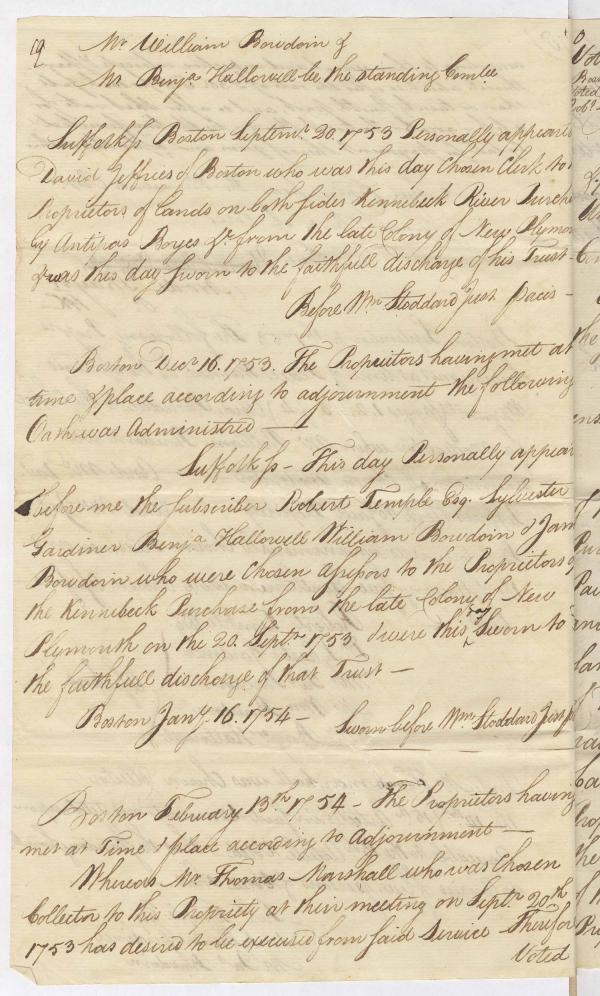 19 Mr William Bowdoin &
Mr Benja Hallowell be the standing Comtee
Suffolk ss Boston Septemr 20. 1753 Personally appeared
David Jeffries of Boston who was this day Chosen Clerk to
Proprietors of Lands on both sides Kennebeck River Purche
by Antipas Boyes &c from the late Colony of New Plymo
& was this day sworn to the faithfull discharge of his Trust
Before Wm Stoddard Just pacis -
Boston Decr 16. 1753. The Proprietors having met at
time & place according to adjournment the following
Oath was Administred —
Suffolk ss - This day Personally appear
before me the subscriber Robert Temple Esq. Sylvester
Gardiner Benja Hallowell William Bowdoin & Jam
Bowdoin who were Chosen assessors to the Proprietors of
the Kennebeck Purchase from the late Colony of New
Plymouth on the 20. Septr 1753 & were this day Sworn to
the faithfull discharge of that Trust —
Boston Jany. 16. 1754 - Sworn before Wm Stoddard Just
Boston February 13th 1754 - The Proprietors having
met at Time & place according to Adjournment —
Whereas Mr Thomas Marshall who was Chosen
Collector to this Propriety at their meeting on Septr 20th
1753 has desired to be excused from said Service Therefor
Voted